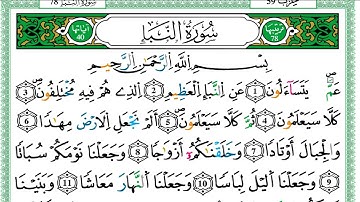 سُورَةُ النَّبَأِ 78
حزب 59
ترتيبها 78
سُورَةُ النَّبَإِ
آياتها 40
بِسْمِ اللَّهِ الرَّحْمَٰنِ الرَّحِيمِ
عَمَّ يَتَسَآءَلُونَ 1 عَنِ النَّبَإِ الْعَظِيمِ 2 الَّذِى هُمْ فِيهِ مُخْتَلِفُونَ 3
كَلَّا سَيَعْلَمُونَ 4 ثُمَّ كَلَّا سَيَعْلَمُونَ 5 أَلَمْ نَجْعَلِ الْأَرْضَ مِهَٰدًا 6
وَالْجِبَالَ أَوْتَادًا 7 وَخَلَقْنَٰكُمْ أَزْوَٰجًا 8 وَجَعَلْنَا نَوْمَكُمْ سُبَاتًا
9 وَجَعَلْنَا الَّيْلَ لِبَاسًا 10 وَجَعَلْنَا النَّهَارَ مَعَاشًا 11 وَبَنَيْنَا